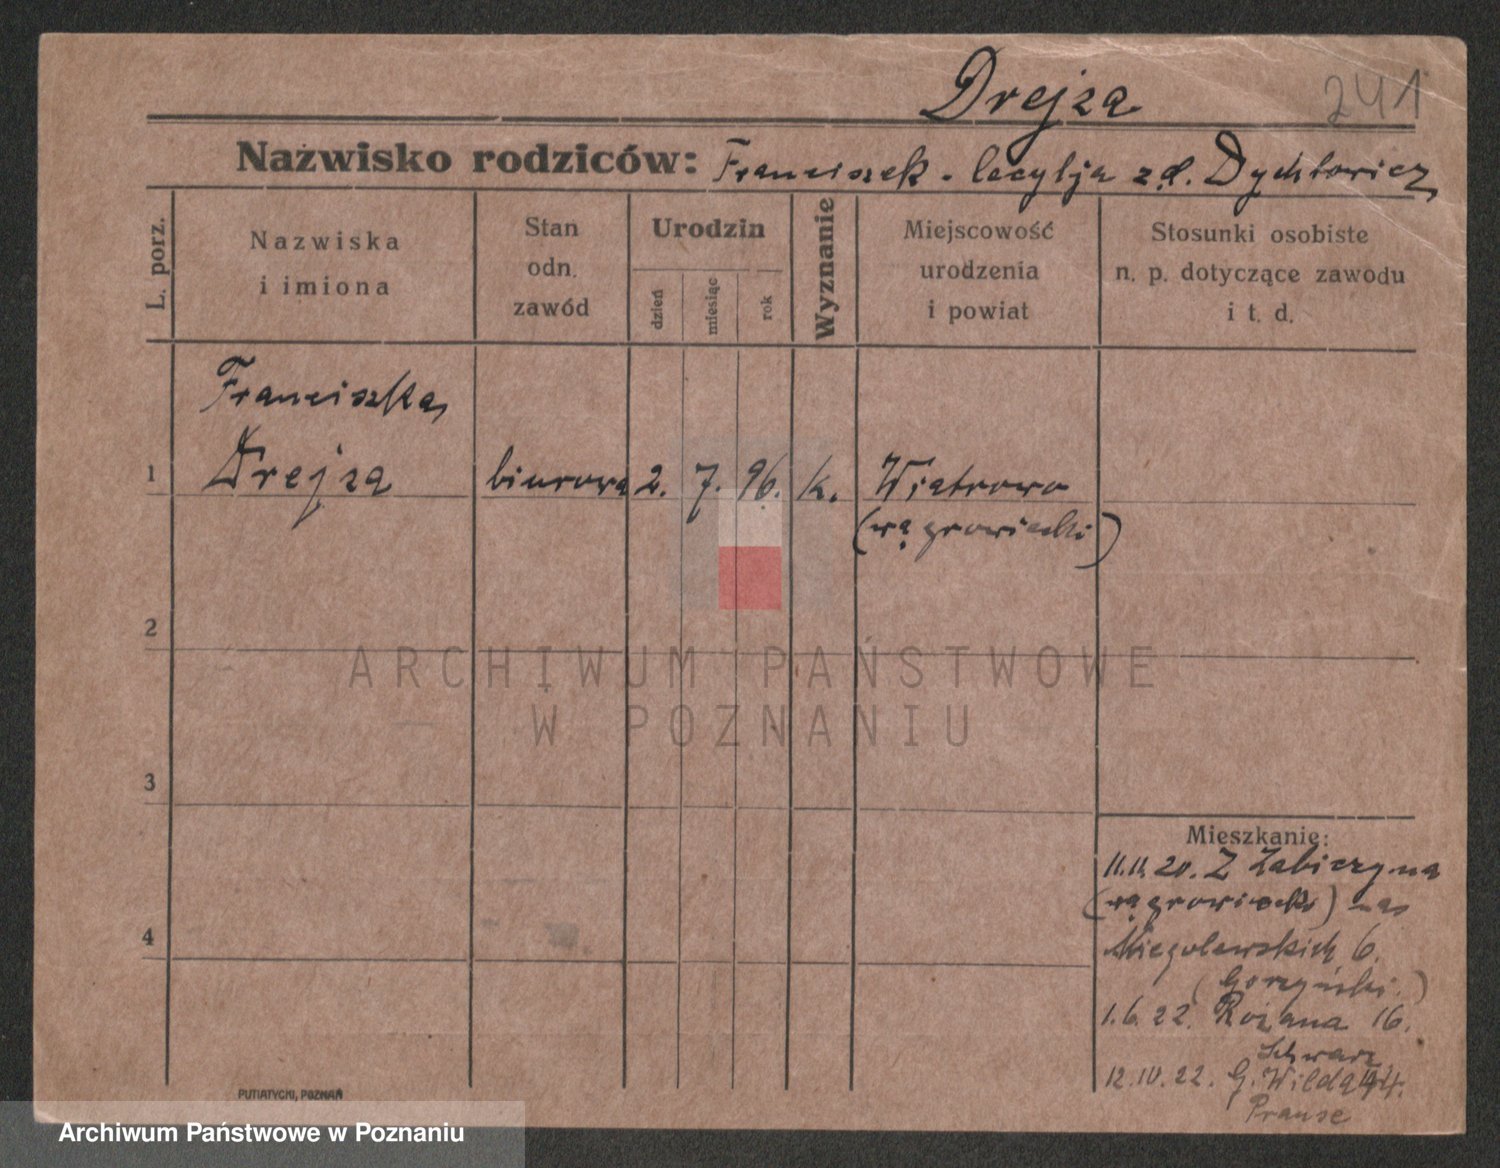 Drejza
241
Nazwisko rodziców: Franciszek - Cecylja z d. Dychtowicz
L. porz.
Nazwiska
i imiona
Stan
odn.
zawód
Urodzin
dzień
miesiąc
rok
Wyznanie
Miejscowość
urodzenia
i powiat
Stosunki osobiste
n. p. dotyczące zawodu
i t. d.
Franciszka
1 Drejza biurowa 2. 7. 96. k. Wiatrowo
(wągrowiecki)
2
ARCHIWUM PAŃSTWOWE
W POZNANIU
3
Mieszkanie:
11.11.20. Z Żabiczyna
(wągrowiecki) na
4
Niegolewskich 6.
(Gorzyński.)
1.6.22. Różana 16.
Schwarz
12.10.22. G. Wilda 44.
Prause
PUTIATYCKI, POZNAŃ
Archiwum Państwowe w Poznaniu